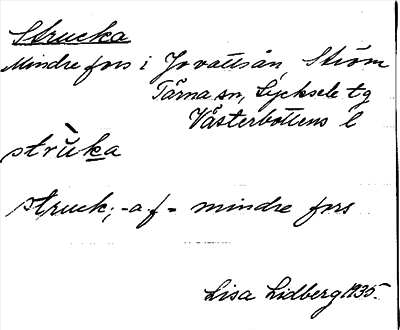 Strucka
Mindre fors i Jovattsån, Ström
Tärna sn, Lycksele tg
Västerbottens l
strùka
struck, -a f = mindre fors
Lisa Lidberg 1935.